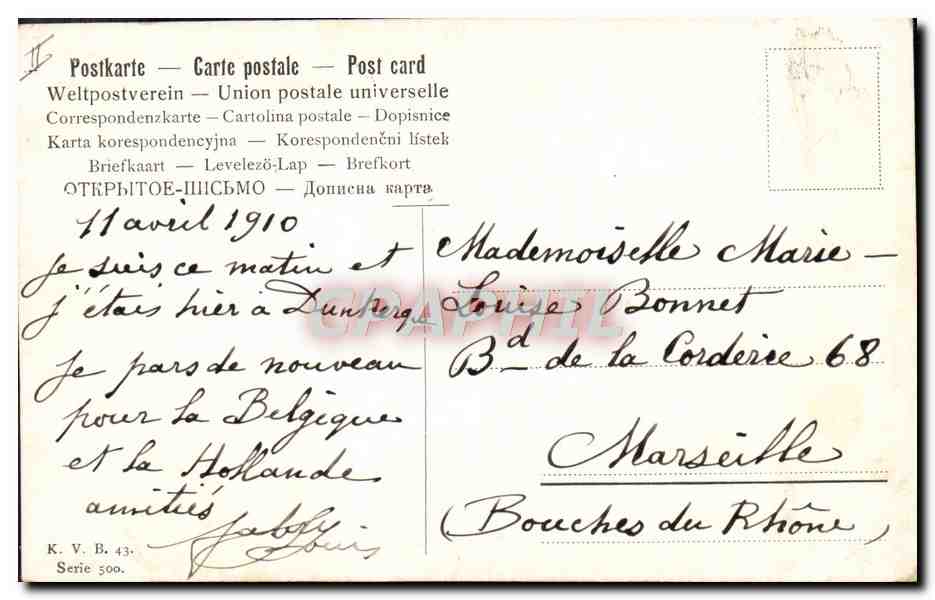 II
Postkarte — Carte postale — Post card
Weltpostverein — Union postale universelle
Correspondenzkarte — Cartolina postale — Dopisnice
Karta korespondencyjna — Korespondenčni lístek
Briefkaart — Levelező-Lap — Brefkort
ОТКРЫТОЕ-ПИСЬМО — Дописна карта
11 avril 1910
je suis ce matin et
j'étais hier à Dunkerque
je pars de nouveau
pour la Belgique
et la Hollande
amitiés
Louis
K. V. B. 43.
Serie 500.
Mademoiselle Marie-
Louise Bonnet
Bd de la Corderie 68
Marseille
(Bouches du Rhône)
CPAPHIL